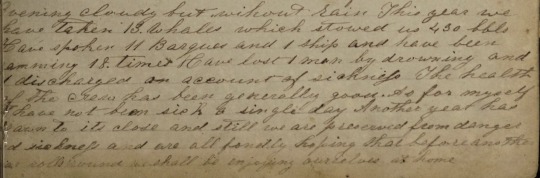 Evening cloudy but without rain This year we
have taken 13 Whales which stowed us 430 bbls
Have spoken 11 Barques and 1 ship and have been
gamming 18 times Have lost 1 man by drowning and
1 discharged on account of sickness The health
of the crew has been generally good. As for myself
I have not been sick a single day Another year has
drawn to its close and still we are preserved from danger
and sickness and are all fondly hoping that before another
rolls round we shall be enjoying ourselves at home